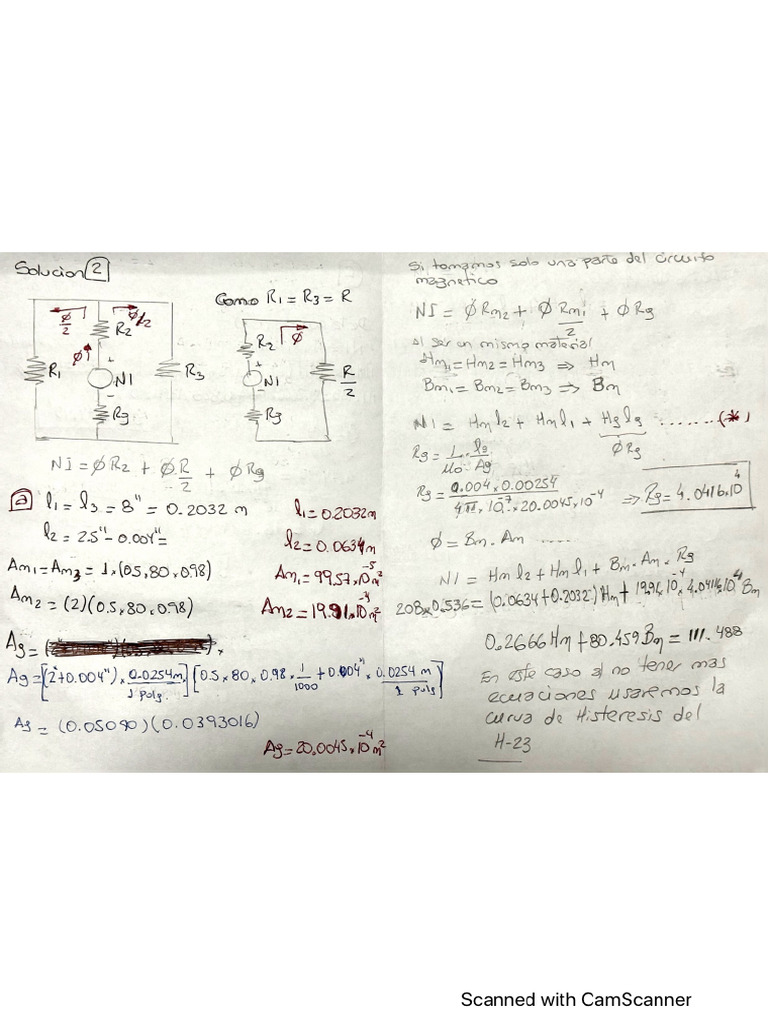 Solucion 2
φ/2
φ/2
R2
φ
R1
NI
R3
Rg
Como R1 = R3 = R
R2
φ
NI
R/2
Rg
NI = φR2 + φ.R/2 + φRg
a l1 = l3 = 8" = 0.2032 m
l1 = 0.2032m
l2 = 2.5" - 0.004" =
l2 = 0.0634m
Am1 = Am3 = 1 x (0.5 x 80 x 0.98)
Am1 = 99.57 x 10^-5 m²
Am2 = (2)(0.5 x 80 x 0.98)
Am2 = 19.91 x 10^-4 m²
Ag =
Ag = [(2"+0.004") x 0.0254m/1 pulg.][0.5 x 80 x 0.98 x 1/1000 + 0.004" x 0.0254m/1 pulg]
Ag = (0.05090)(0.0393016)
Ag = 20.0045 x 10^-4 m²
Si tomamos solo una parte del circuito
magnetico
NI = φRm2 + φRm1/2 + φRg
al ser un mismo material
Hm1 = Hm2 = Hm3 ⇒ Hm
Bm1 = Bm2 = Bm3 ⇒ Bm
NI = Hm l2 + Hm l1 + Hg lg ....... (*)
φRg
Rg = 1/μo . lg/Ag
Rg = 0.004 x 0.00254 / 4π x 10^-7 x 20.0045 x 10^-4 ⇒ Rg = 4.0416x10^4
φ = Bm . Am ......
NI = Hm l2 + Hm l1 + Bm . Am . Rg
208 x 0.536 = (0.0634+0.2032) Hm + 19.91 x 10^-4 x 4.0416 x 10^4 Bm
0.2666Hm + 80.459Bm = 111.488
En este caso al no tener mas
ecuaciones usaremos la
curva de Histeresis del
H-23
Scanned with CamScanner